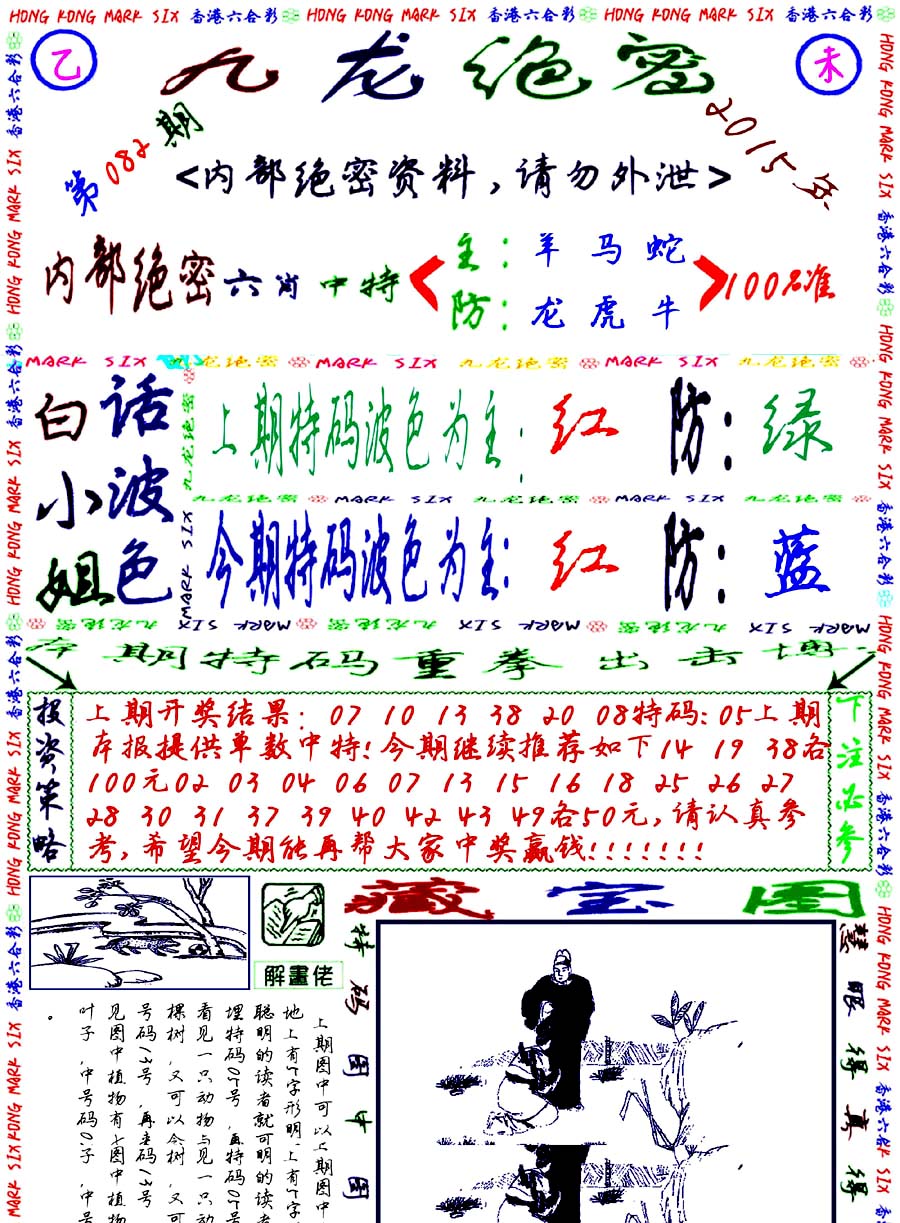 HONG KONG MARK SIX 香港六合彩 HONG KONG MARK SIX 香港六合彩 HONG KONG MARK SIX 香港六合彩
乙
九龙绝密
未
第082期
2015年
<内部绝密资料,请勿外泄>
内部绝密六肖中特
主:羊马蛇
防:龙虎牛
100%准
MARK SIX 九龙绝密 MARK SIX 九龙绝密 MARK SIX 九龙绝密
白话
小波
姐色
上期特码波色为主:红 防:绿
九龙绝密 MARK SIX 九龙绝密 MARK SIX 九龙绝密
今期特码波色为主:红 防:蓝
九龙绝密 MARK SIX 九龙绝密 MARK SIX 九龙绝密 MARK SIX
本期特码重拳出击博
投资策略
上期开奖结果:07 10 13 38 20 08特码:05上期
本报提供单数中特!今期继续推荐如下14 19 38各
100元02 03 04 06 07 13 15 16 18 25 26 27
28 30 31 37 39 40 42 43 49各50元,请认真参
考,希望今期能再帮大家中奖赢钱!!!!!!!
下注必参
藏宝图
解畫佬
特码图中图
慧眼得真得
上期图中可以上期图中
地上有7字形明.上有7字
聪明的读者就可明的读者
埋特码07号,再特码07号
看见一只动物与见一只动
棵树,又可以今树,又可
号码13号,再来码13号
见图中植物有7图中植物
叶子,中号码0子,中号
。